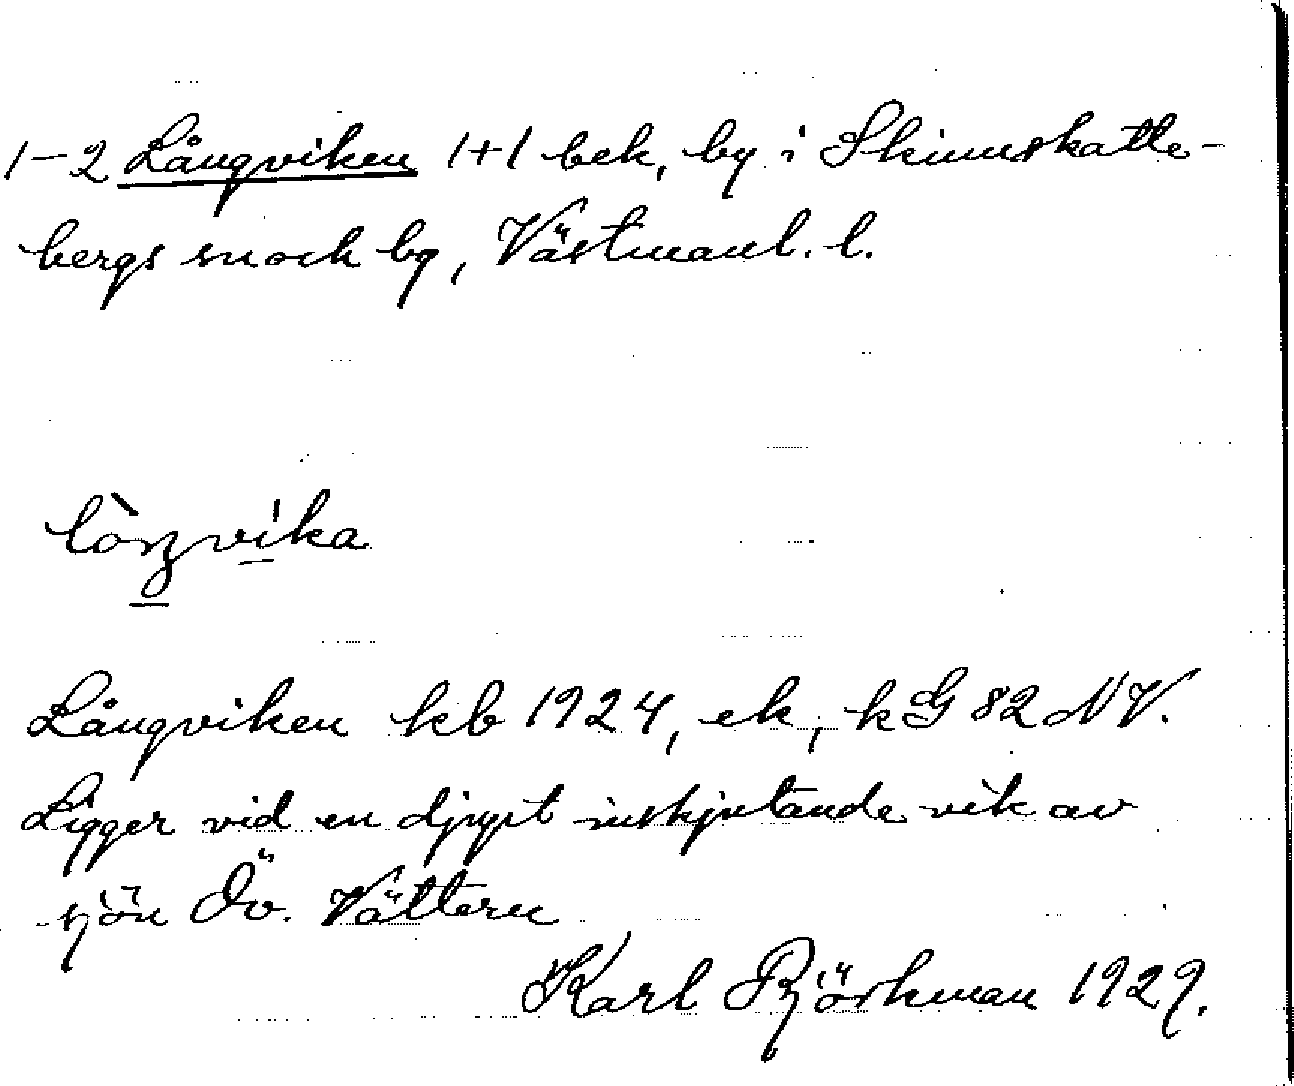 1-2 Långviken 1+1 bek, by i Skinnskatte-
bergs sn och bg, Västmanl. l.
lòŋvika
Långviken kb 1924, ek, kG 82 NV.
Ligger vid en djupt inskjutande vik av
sjön Öv. Vättern
Karl Björkman 1929.